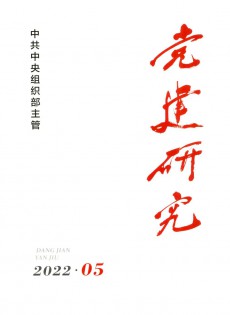 党建研究
中共中央组织部主管
DANG JIAN
YAN JIU
2022·05